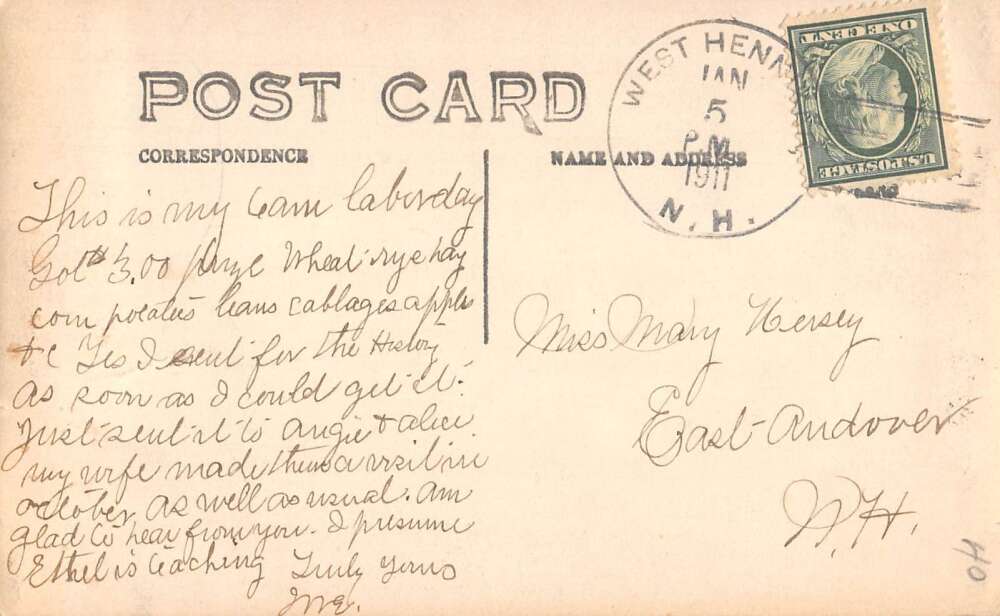 POST CARD
CORRESPONDENCE
NAME AND ADDRESS
WEST HENN
JAN
5
P.M.
1911
N.H.
ONE CENT
U.S. POSTAGE
This is my team labor day
Got $3.00 prize Wheat rye hay
corn potatoes beans cabbages apples
&c Yes I sent for the History
as soon as I could get it.
Just sent it to Angie & alice
my wife made them a visit in
october. as well as usual. am
glad to hear from you. I presume
Ethel is teaching Truly yours
Miss Mary Hersey
East Andover
N.H.
OH